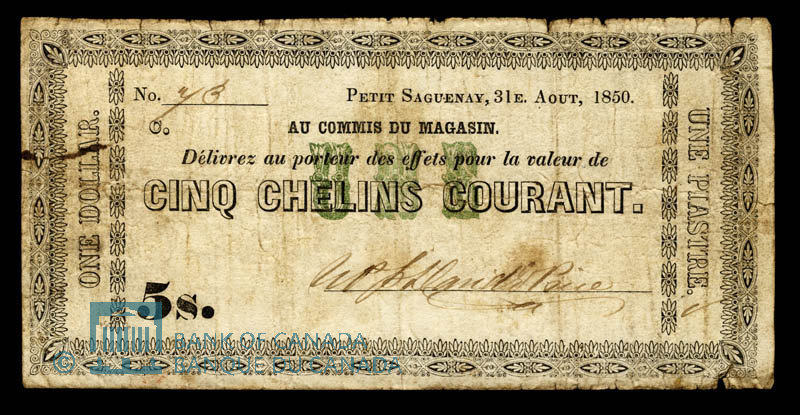 No. 73
PETIT SAGUENAY, 31E. AOUT, 1850.
C.
AU COMMIS DU MAGASIN.
Délivrez au porteur des effets pour la valeur de
ONE
CINQ CHELINS COURANT.
5s.
Price
ONE DOLLAR.
UNE PIASTRE.
© BANK OF CANADA
BANQUE DU CANADA